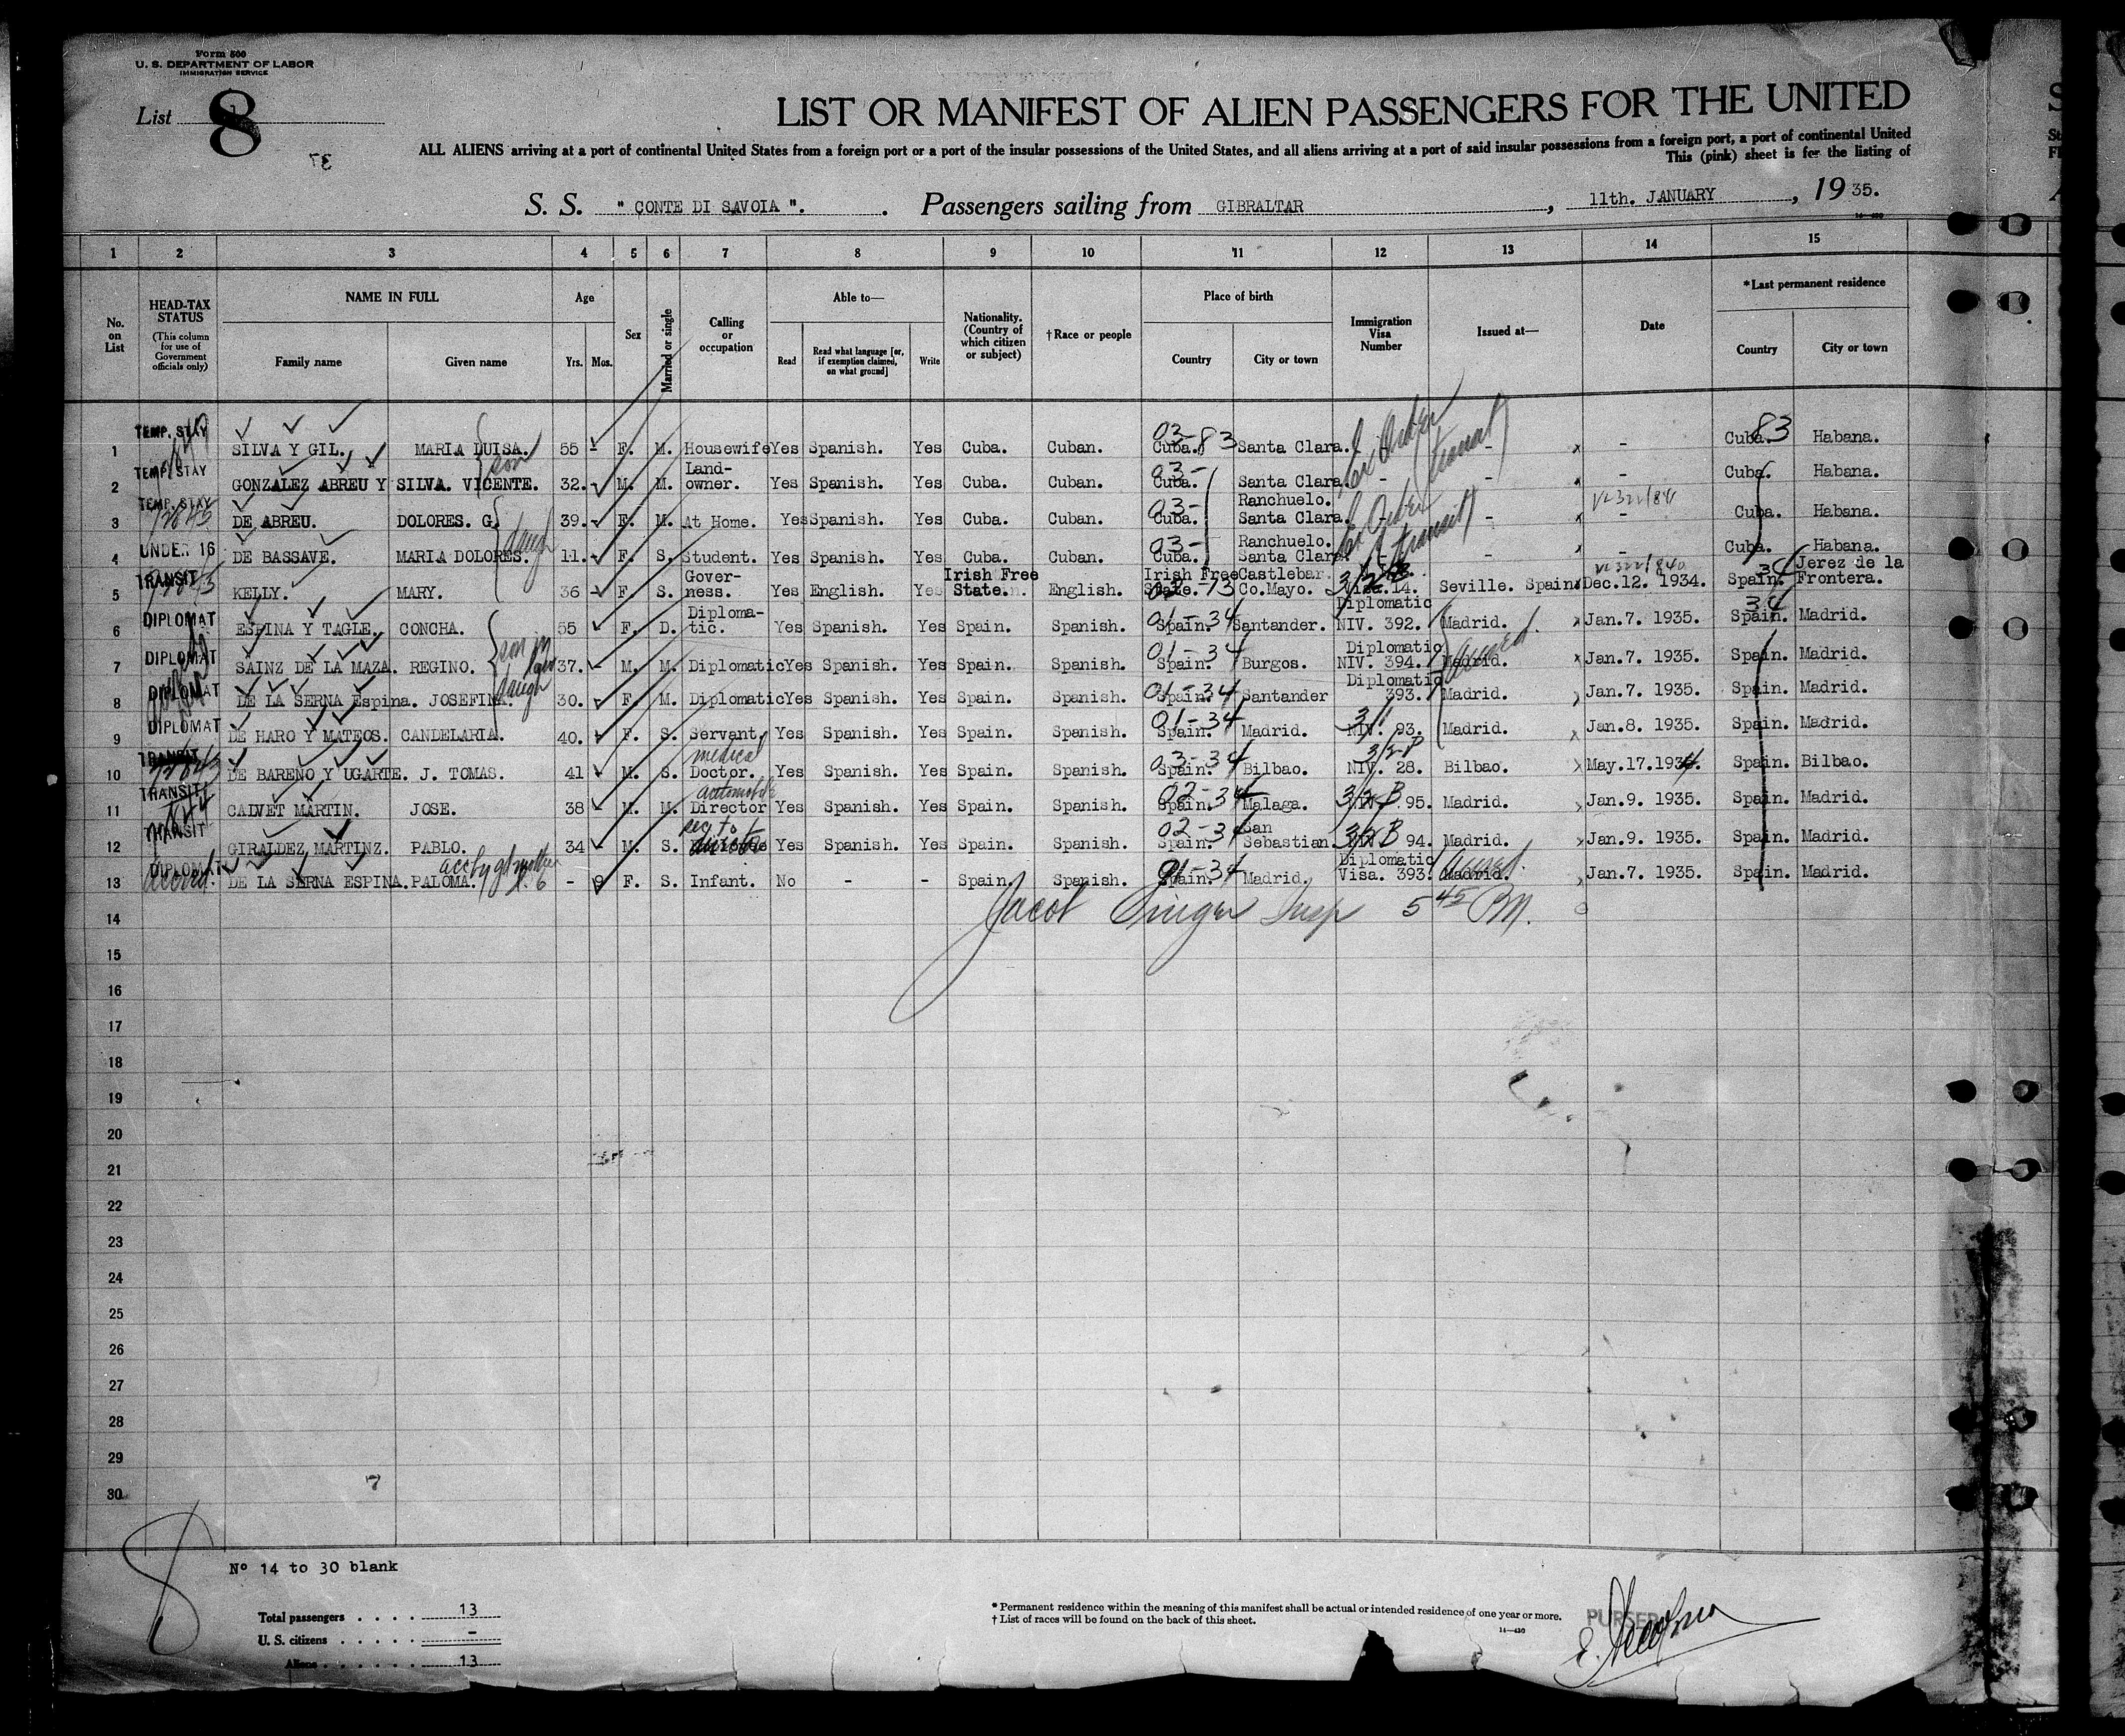 Form 500
U. S. DEPARTMENT OF LABOR
IMMIGRATION SERVICE
List 8
37
LIST OR MANIFEST OF ALIEN PASSENGERS FOR THE UNITED
ALL ALIENS arriving at a port of continental United States from a foreign port or a port of the insular possessions of the United States, and all aliens arriving at a port of said insular possessions from a foreign port, a port of continental United
This (pink) sheet is for the listing of
S. S. " CONTE DI SAVOIA ". Passengers sailing from GIBRALTAR, 11th. JANUARY, 1935.
14—430
1 2 3 4 5 6 7 8 9 10 11 12 13 14 15
No. on List
HEAD-TAX STATUS (This column for use of Government officials only)
NAME IN FULL
Family name Given name
Age
Yrs. Mos.
Sex
Married or single
Calling or occupation
Able to—
Read Read what language [or, if exemption claimed, on what ground] Write
Nationality. (Country of which citizen or subject)
†Race or people
Place of birth
Country City or town
Immigration Visa Number
Issued at—
Date
*Last permanent residence
Country City or town
1 TEMP. STAY SILVA Y GIL. MARIA LUISA. 55 - F. M. Housewife Yes Spanish. Yes Cuba. Cuban. 03-83 Cuba. Santa Clara. - - Cuba. 83 Habana.
2 TEMP. STAY GONZALEZ ABREU Y SILVA. VICENTE. son 32. - M. M. Land-owner. Yes Spanish. Yes Cuba. Cuban. 03- Cuba. Santa Clara. - - - Cuba. Habana.
3 TEMP. STAY DE ABREU. DOLORES. G. 39. - F. M. At Home. Yes Spanish. Yes Cuba. Cuban. 03- Cuba. Ranchuelo. Santa Clara. - - Cuba. Habana.
4 UNDER 16 DE BASSAVE. MARIA DOLORES. daugh 11. - F. S. Student. Yes Spanish. Yes Cuba. Cuban. 03- Cuba. Ranchuelo. Santa Clara. - - - Cuba. Habana.
5 TRANSIT KELLY. MARY. 36 - F. S. Gover-ness. Yes English. Yes Irish Free State. English. Irish Free State. Castlebar. Co.Mayo. Visa.14. Seville. Spain Dec.12. 1934. Spain. 34 Jerez de la Frontera.
6 DIPLOMAT ESPINA Y TAGLE. CONCHA. 55 F. D. Diploma-tic. Yes Spanish. Yes Spain. Spanish. 01-34 Spain. Santander. Diplomatic NIV. 392. Madrid. Jan.7. 1935. 34 Spain. Madrid.
7 DIPLOMAT SAINZ DE LA MAZA. REGINO. son in law 37. - M. M. Diplomatic Yes Spanish. Yes Spain. Spanish. 01-34 Spain. Burgos. Diplomatic NIV. 394. Madrid. Jan.7. 1935. Spain. Madrid.
8 DIPLOMAT DE LA SERNA Espina. JOSEFINA. daugh 30. - F. M. Diplomatic Yes Spanish. Yes Spain. Spanish. 01-34 Spain. Santander Diplomatic 393. Madrid. Jan.7. 1935. Spain. Madrid.
9 DIPLOMAT DE HARO Y MATEOS. CANDELARIA. 40. - F. S. Servant. Yes Spanish. Yes Spain. Spanish. 01-34 Spain. Madrid. NIV. 93. Madrid. Jan.8. 1935. Spain. Madrid.
10 TRANSIT DE BARENO Y UGARTE. J. TOMAS. 41 M. S. medical Doctor. Yes Spanish. Yes Spain. Spanish. 03-34 Spain. Bilbao. NIV. 28. Bilbao. May.17.1934. Spain. Bilbao.
11 TRANSIT CALVET MARTIN. JOSE. 38 M. M. automobile Director Yes Spanish. Yes Spain. Spanish. 02-34 Spain. Malaga. 95. Madrid. Jan.9. 1935. Spain. Madrid.
12 TRANSIT GIRALDEZ MARTINZ. PABLO. 34 M. S. sec to Yes Spanish. Yes Spain. Spanish. 02-34 Spain. San Sebastian. 94. Madrid. Jan.9. 1935. Spain. Madrid.
13 DIPLOMAT DE LA SERNA ESPINA. PALOMA. - 9 F. S. Infant. No - - Spain. Spanish. 01-34 Spain. Madrid. Diplomatic Visa. 393. Madrid. Jan.7. 1935. Spain. Madrid.
14 Jacob Singer Insp 5 45 PM.
15
16
17
18
19
20
21
22
23
24
25
26
27
28
29
30
8
Nº 14 to 30 blank
Total passengers . . . . 13
U. S. citizens . . . . . -
Aliens . . . . . . 13
* Permanent residence within the meaning of this manifest shall be actual or intended residence of one year or more.
† List of races will be found on the back of this sheet.
14—430
PURSER